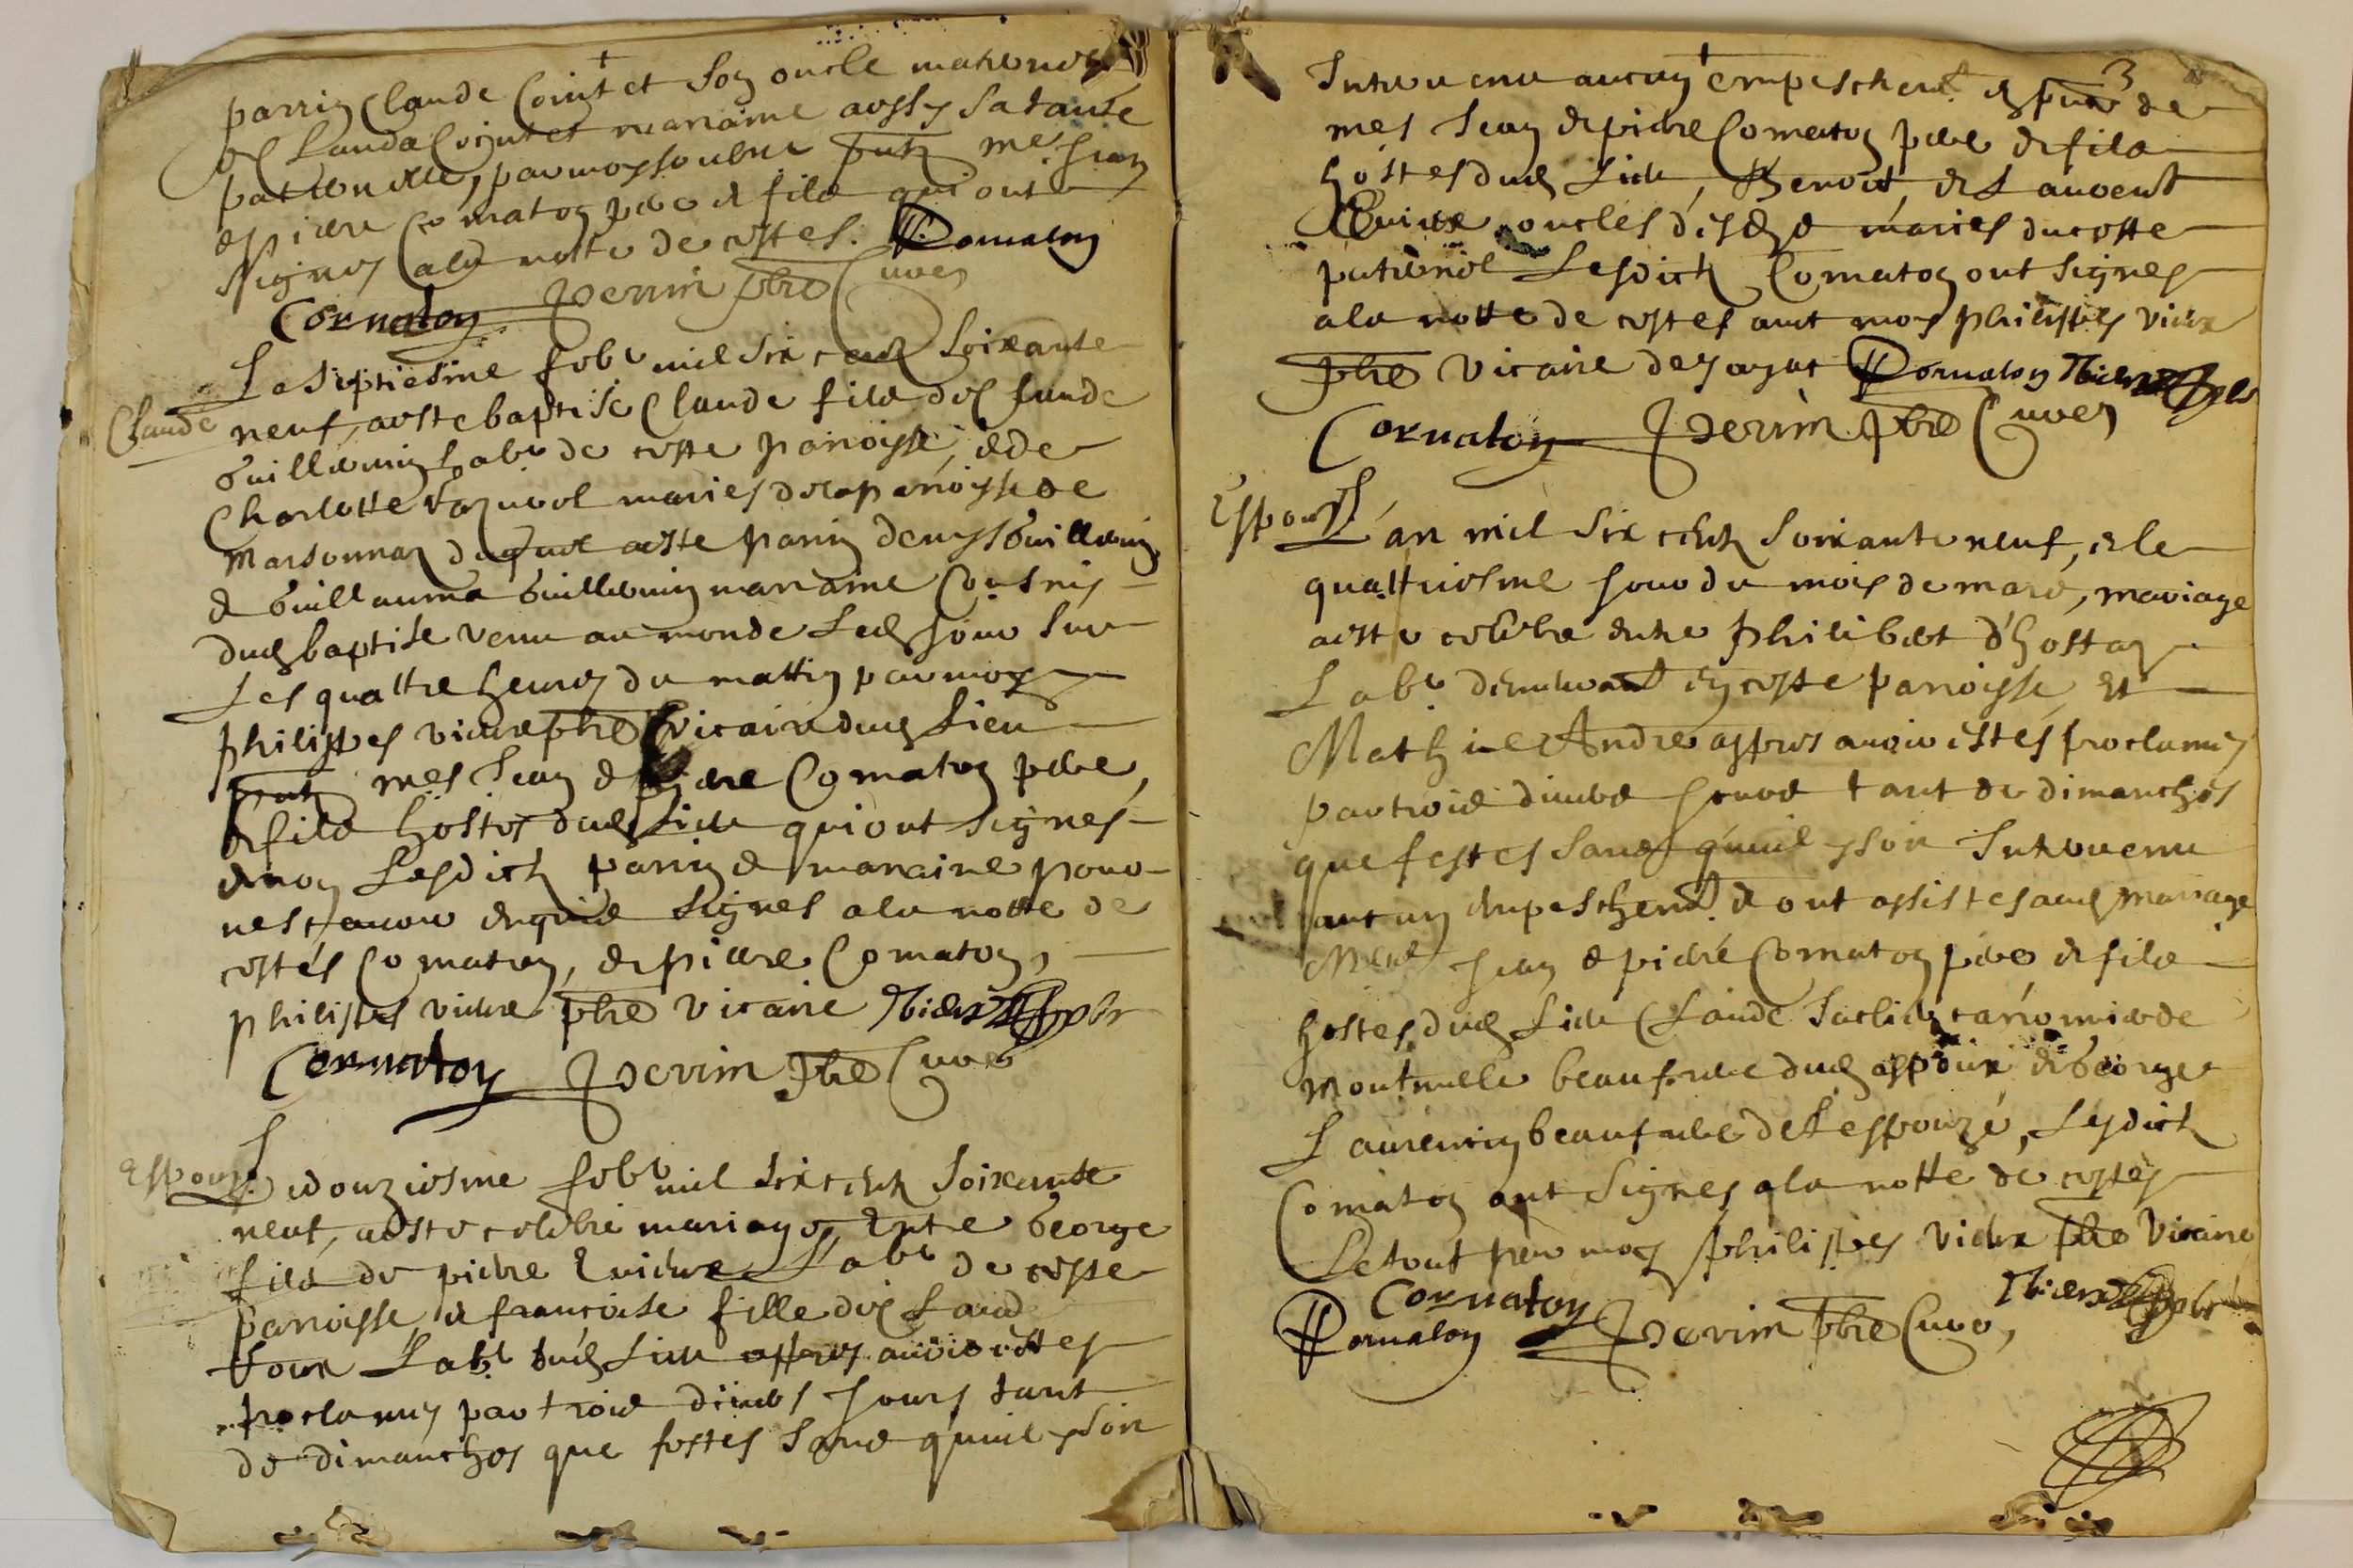 parrin Claude Cointet son oncle maternel
et Clauda Cointet maraine aussy sa tante
paternelle, par moy soubne putz me Jean
et pierre Cornaton pere et filz qui ont
signes a la notte de costes. PCornaton
Cornaton Perrin pbre Cure
Claude
Le septiesme febr mil six centz soixante
neuf, a este baptisé Claude filz de Claude
Guillemin labr de ceste paroisse, et de
Charlotte maries de la paroisse de
Marsonnaz duquel a este parin denys Guillemin
et Guillauma Guillemin maraine Cousins
dud baptise venu au monde led jour sur
Les quattre heures du mattin par moy
philippes vieux pbre vicaire dud Lieu
putz mes Jean et pierre Cornaton pere,
et filz hostes dud Lieu qui ont signes
et non Lesdictz parin et maraine pour
nescavoir enquis signes a la notte de
costés Cornaton, et pierre Cornaton,
philippes vieux pbre vicaire Vieux pbr
Cornaton Perrin pbre Cure
Espous
Le douziesme febr mil six centz soixante
neuf, a este celebré mariage, Entre George
filz de pierre Labr de ceste
paroisse et francoise fille de Claude
Labr dud Lieu appres avoir estes
proclamés par trois divers jours tant
de dimanches que festes sans quil y soit
3
Intervenu aucun empeschent et pnce de
mes Jean et pierre Cornaton pere et filz
hostes dud Lieu, Benoit et Laurent
oncles desd maries du coste
paternel Lesdictz Cornaton ont signes
a la notte de costes avec moy philippes vieux
pbre vicaire de Jayat PCornaton Vieux pbr
Cornaton Perrin pbre Cure
Espous
L'an mil six centz soixante neuf, et le
quattriesme jour du mois de mars, mariage
a este celebré entre philibert d'hostaz
Labr demeurant en ceste paroisse, et
Mathie Andre appres avoir estés proclamés
par trois divers jours tant de dimanches
que festes sans quil y soit Intervenu
aucun empeschent et ont assistes aud mariage
Mes Jean et pierre Cornaton pere et filz
hostes dud Lieu Claude de
Montrevel beaufrere dud espoux et George
Laurencin beaufrere de Lespouzé, Lesdictz
Cornaton ont signes a la notte de costes
Le tout par moy philippes vieux pbre vicaire
Cornaton Vieux pbr
PCornaton Perrin pbre Cure,